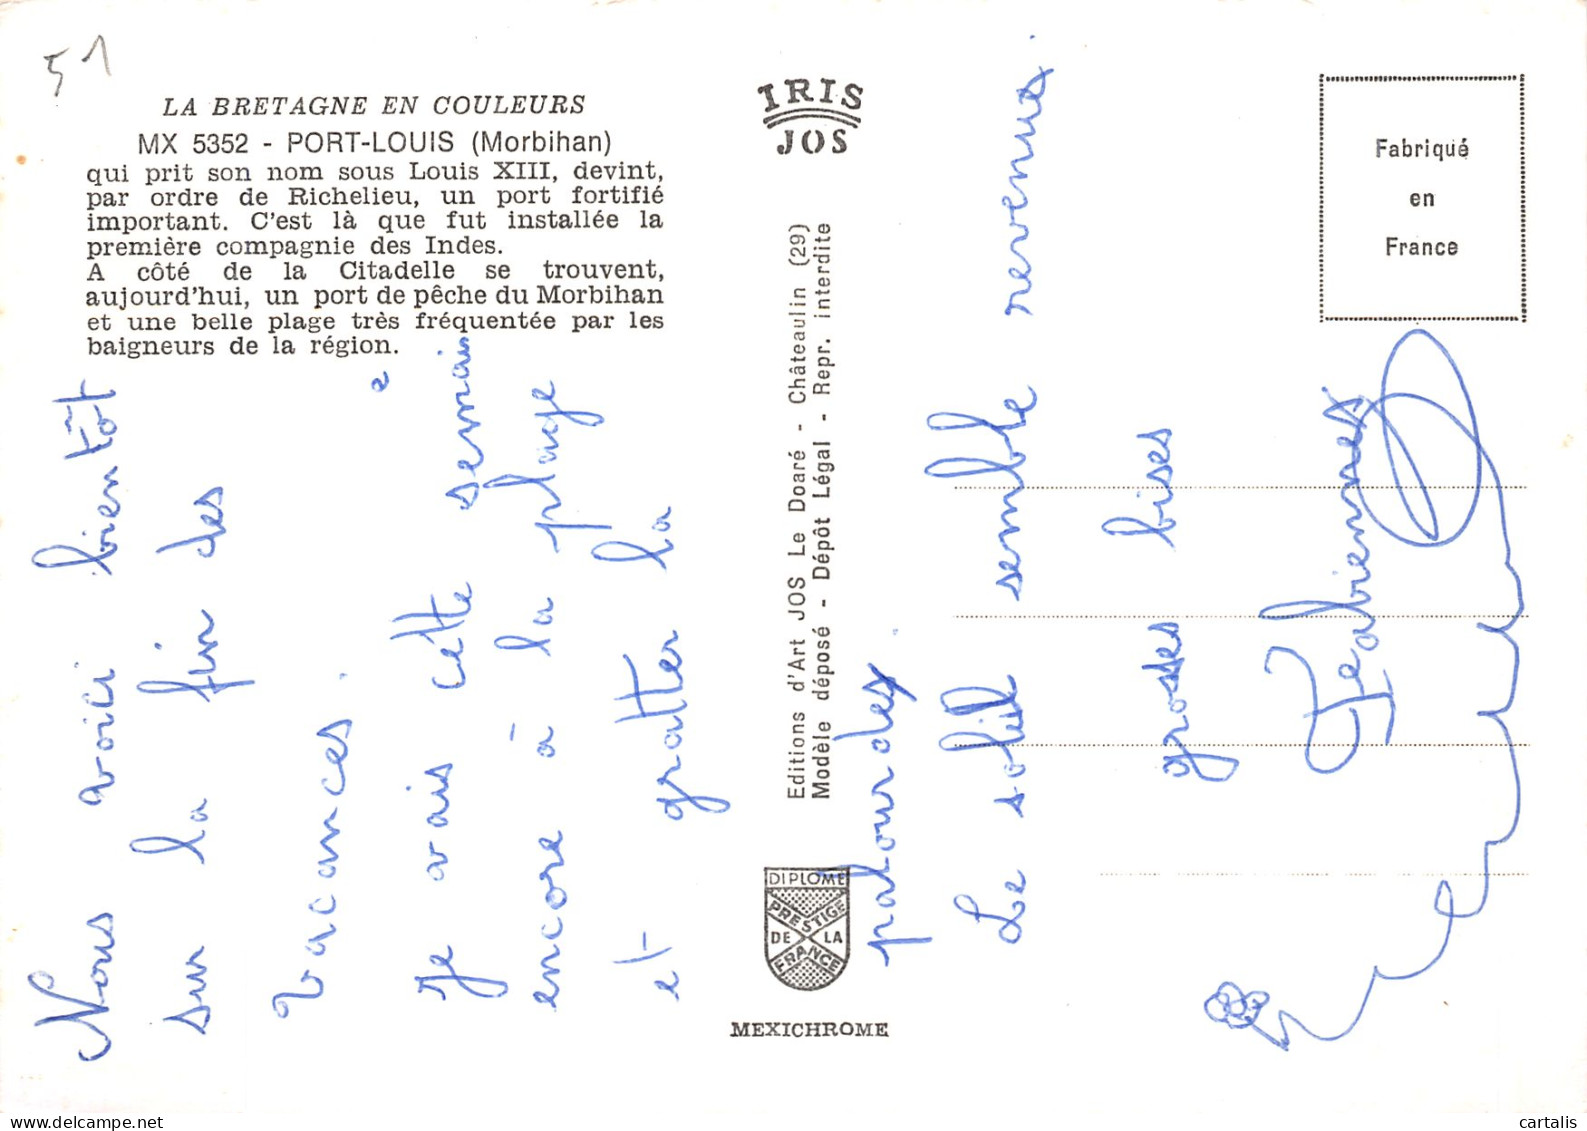 51
LA BRETAGNE EN COULEURS
MX 5352 - PORT-LOUIS (Morbihan)
qui prit son nom sous Louis XIII, devint,
par ordre de Richelieu, un port fortifié
important. C'est là que fut installée la
première compagnie des Indes.
A côté de la Citadelle se trouvent,
aujourd'hui, un port de pêche du Morbihan
et une belle plage très fréquentée par les
baigneurs de la région.
Nous voici bientôt
sur la fin des
vacances.
Je vais cette semaine
encore à la plage
et gratter la
palourdes.
Le soleil semble revenu.
grosses bises
Fabienne
IRIS
JOS
Editions d'Art JOS Le Doaré - Châteaulin (29)
Modèle déposé - Dépôt Légal - Repr. interdite
DIPLOME
PRESTIGE
DE LA
FRANCE
MEXICHROME
Fabriqué
en
France
cartalis